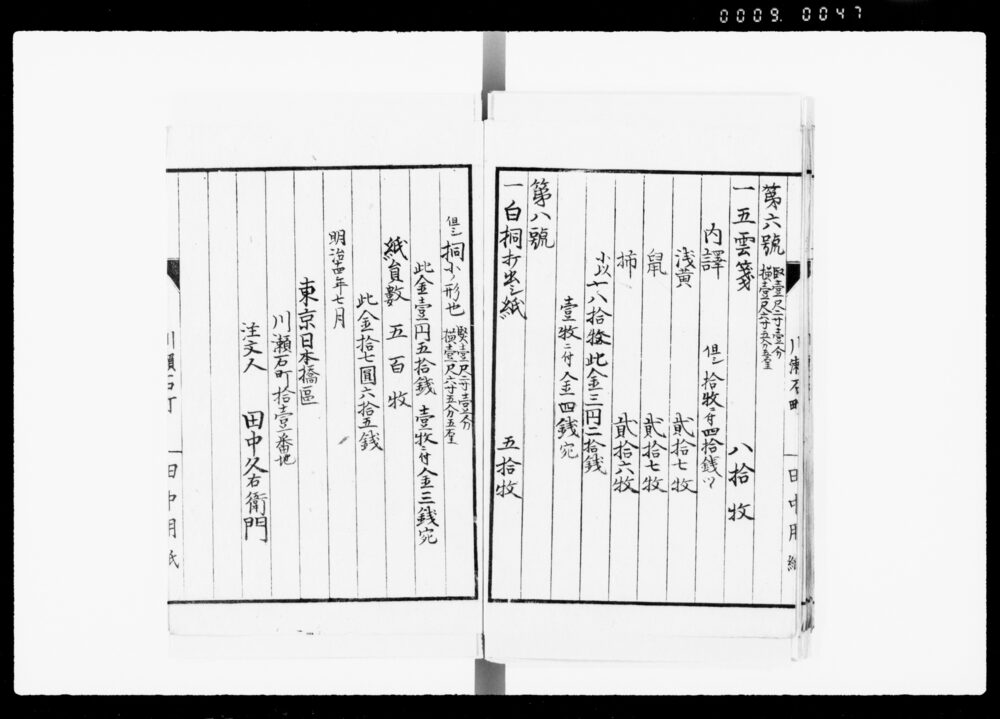 0009. 0047
第六號 竪壹尺二寸壹分
横壹尺六寸五分五厘
一五雲箋 八拾牧
内譯 但シ拾牧ニ付四拾銭ツ
浅黄 貳拾七牧
鼠 貳拾七牧
柿 貳拾六牧
小以〆八拾牧 此金三円二拾銭
壹牧ニ付金四銭宛
第八號
一白桐打出シ紙 五拾牧
但シ桐小形也 竪壹尺二寸壹分
横壹尺六寸五分五厘
此金壹円五拾銭 壹牧ニ付金三銭宛
紙員數 五百牧
此金拾七圓六拾五銭
明治十四年七月
東京日本橋區
川瀬石町拾壹番地
注文人 田中久右衛門
川瀬石町
田中用紙
川瀬石町
田中用紙